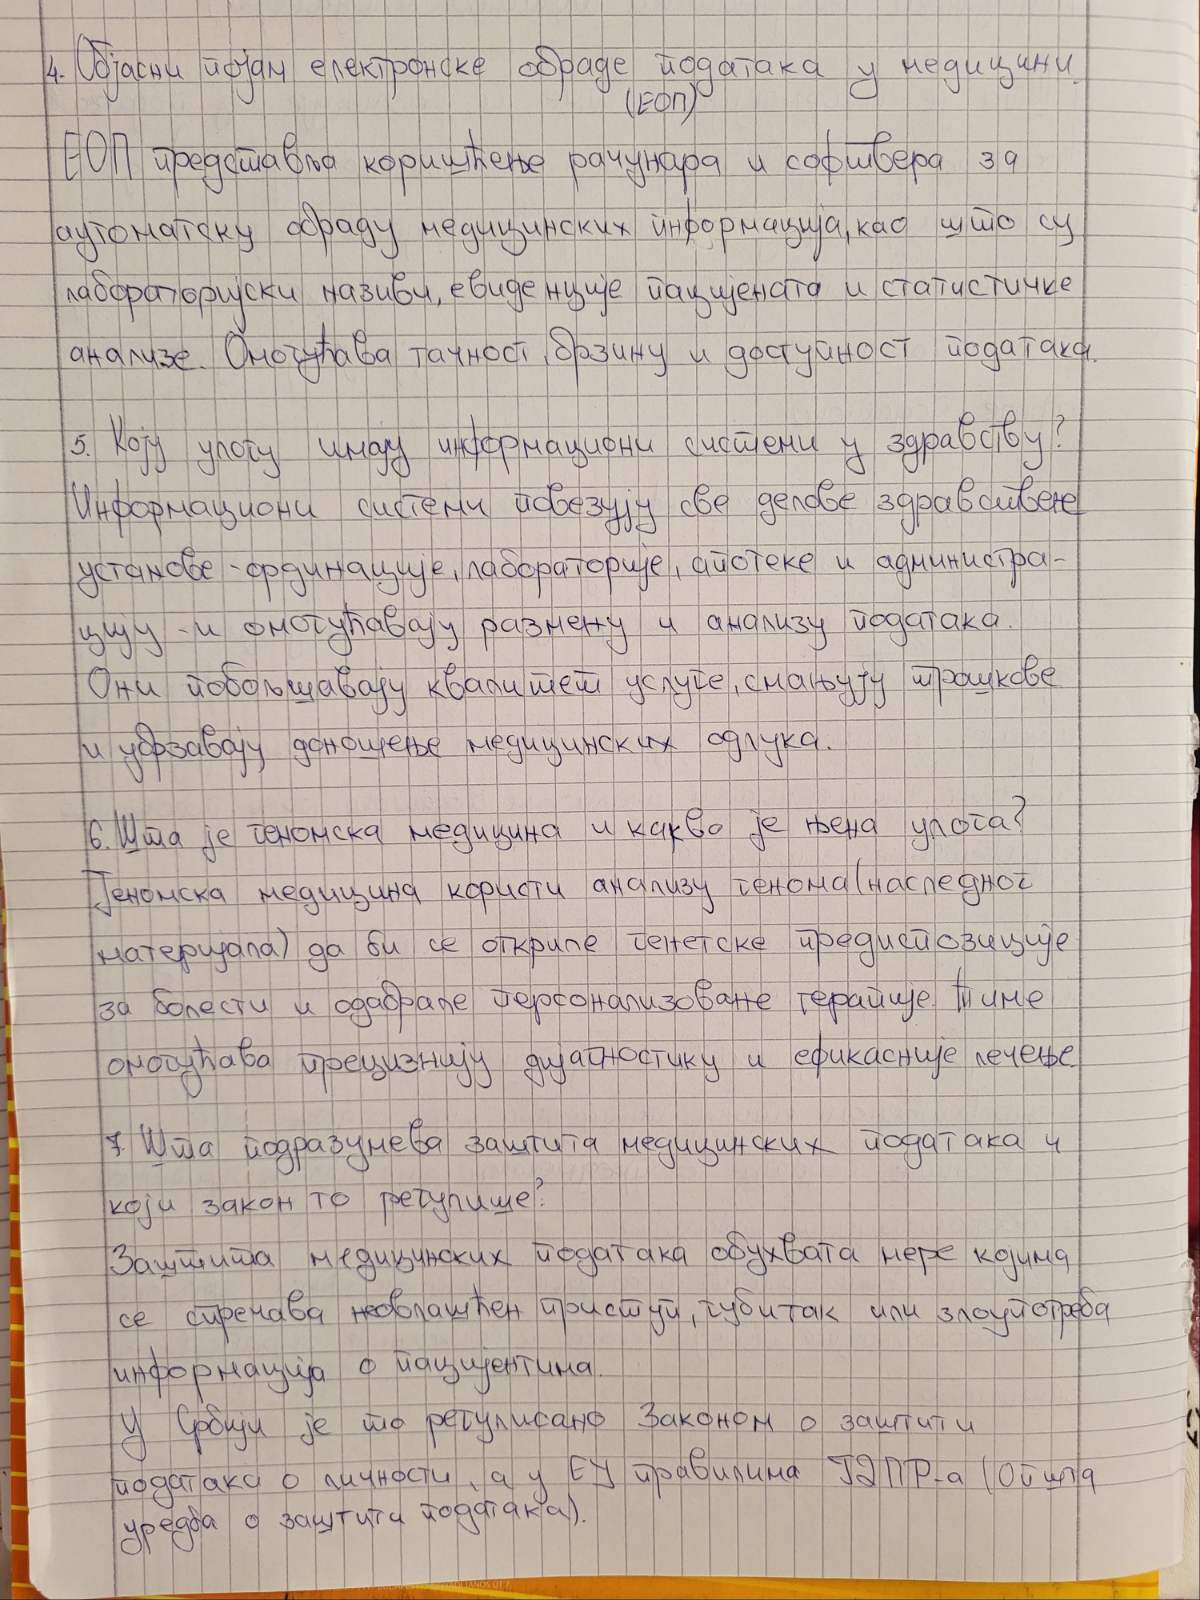 4. Објасни појам електронске обраде података у медицини.
(ЕОП)
ЕОП представља коришћење рачунара и софтвера за
аутоматску обраду медицинских информација, као што су
лабораторијски називи, евиденције пацијената и статистичке
анализе. Омогућава тачност, брзину и доступност података.
5. Коју улогу имају информациони системи у здравству?
Информациони системи повезују све делове здравствене
установе - ординације, лабораторије, апотеке и администра-
цију - и омогућавају размену и анализу података.
Они побољшавају квалитет услуге, смањују трошкове
и убрзавају доношење медицинских одлука.
6. Шта је геномска медицина и каква је њена улога?
Геномска медицина користи анализу генома (наследног
материјала) да би се откриле генетске предиспозиције
за болести и одабрале персонализоване терапије. Тиме
омогућава прецизнију дијагностику и ефикасније лечење.
7. Шта подразумева заштита медицинских података и
који закон то регулише?
Заштита медицинских података обухвата мере којима
се спречава неовлашћен приступ, губитак или злоупотреба
информација о пацијентима.
У Србији је то регулисано Законом о заштити
података о личности, а у ЕУ правилима ГДПР-а (Општа
уредба о заштити података).